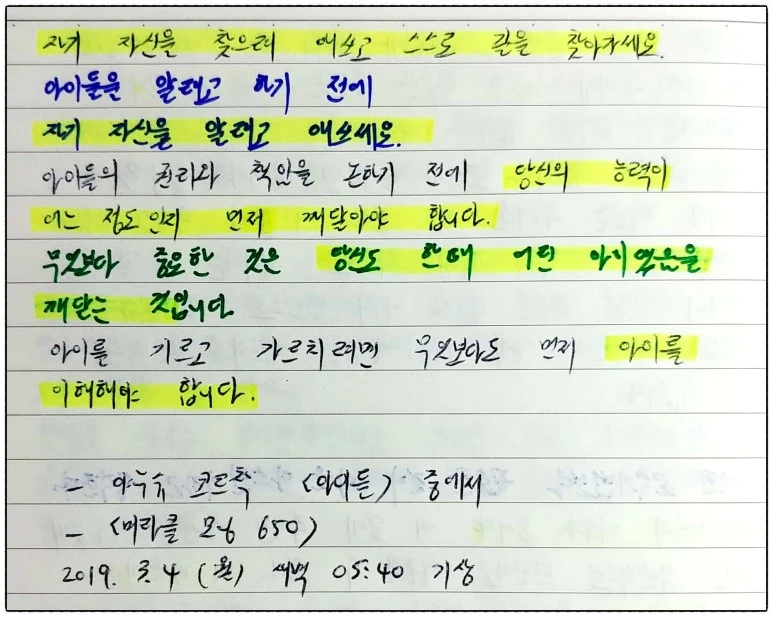 자기 자신을 찾으려 애쓰고 스스로 길을 찾아가세요.
아이들을 알려고 하기 전에
자기 자신을 알려고 애쓰세요.
아이들의 권리와 책임을 논하기 전에 당신의 능력이
어느 정도인지 먼저 깨달아야 합니다.
무엇보다 중요한 것은 당신도 한때 어린 아이였음을
깨닫는 것입니다.
아이를 기르고 가르치려면 무엇보다도 먼저 아이를
이해해야 합니다.
- 야누슈 코르착 <아이들> 중에서
- <미라클 모닝 650>
2019. 3. 4 (월) 새벽 05:40 기상